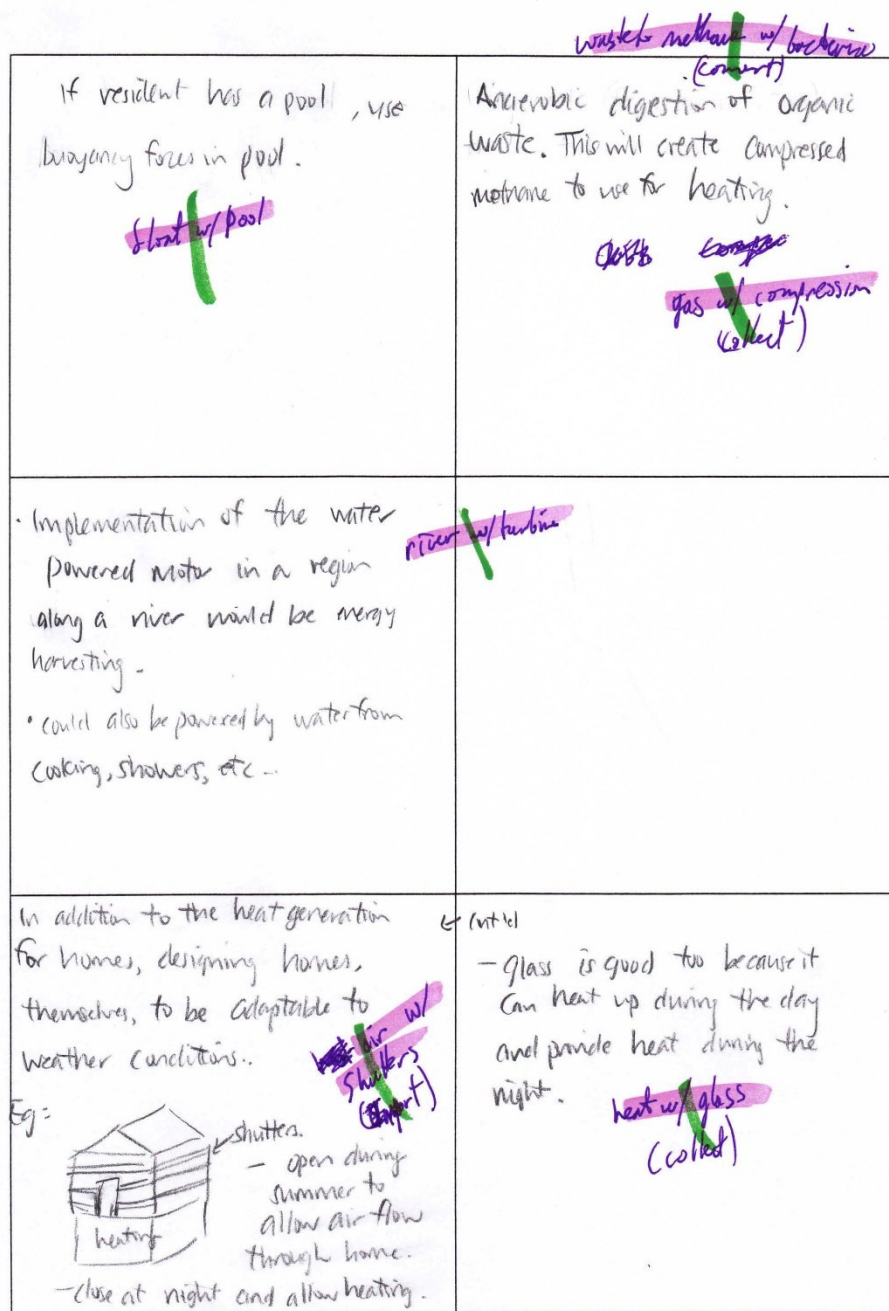 waste to methane w/ bacteria
(convert)
If resident has a pool, use
buoyancy forces in pool.
float w/ pool
Anaerobic digestion of organic
waste. This will create compressed
methane to use for heating.
gas w/ compression
(collect)
· Implementation of the water
powered motor in a region
along a river would be energy
harvesting.
· could also be powered by water from
cooking, showers, etc..
river w/ turbine
In addition to the heat generation
for homes, designing homes,
themselves, to be adaptable to
weather conditions..
air w/
shutters
Eg:
shutters.
- open during
summer to
allow air flow
through home.
heating
- close at night and allow heating.
- glass is good too because it
can heat up during the day
and provide heat during the
night.
heat w/ glass
(collect)